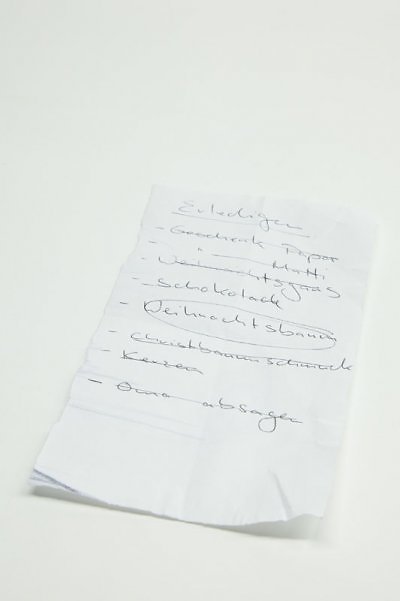 Erledigen
- Geschenk Papa
- " Mutti
- Weihnachtsgans
- Schokolade
- Weihnachtsbaum
- Christbaumschmuck
- Kerzen
- Oma absagen